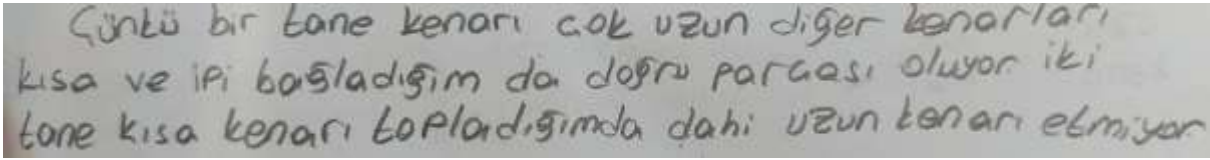 Çünkü bir tane kenarı çok uzun diğer kenarları
kısa ve ipi bağladığım da doğru parçası oluyor iki
tane kısa kenarı topladığımda dahi uzun kenarı etmiyor